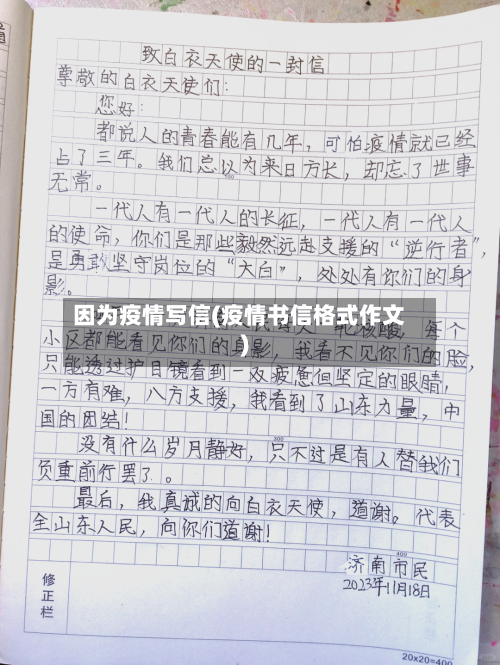 致白衣天使的一封信
尊敬的白衣天使们：
您好：
都说人的青春能有几年，可怕疫情就已经
占了三年。我们总以为来日方长，却忘了世事
无常。
一代人有一代人的长征，一代人有一代人
的使命，你们是那些毅然远赴支援的“逆行者”，
是勇敢坚守岗位的“大白”，处处有你们的身
影。
因为疫情写信(疫情书信格式作文
)
核酸，每个
小区都能看见你们的身影，我看不见你们的脸，
只能透过护目镜看到一双疲惫但坚定的眼睛，
一方有难，八方支援，我看到了山东力量，中
国的团结！
300
没有什么岁月静好，只不过是有人替我们
负重前行罢了。
最后，我真诚的向白衣天使，道谢。代表
全山东人民，向你们道谢！
400
济南市民
2023年11月18日
修正栏
20×20=400